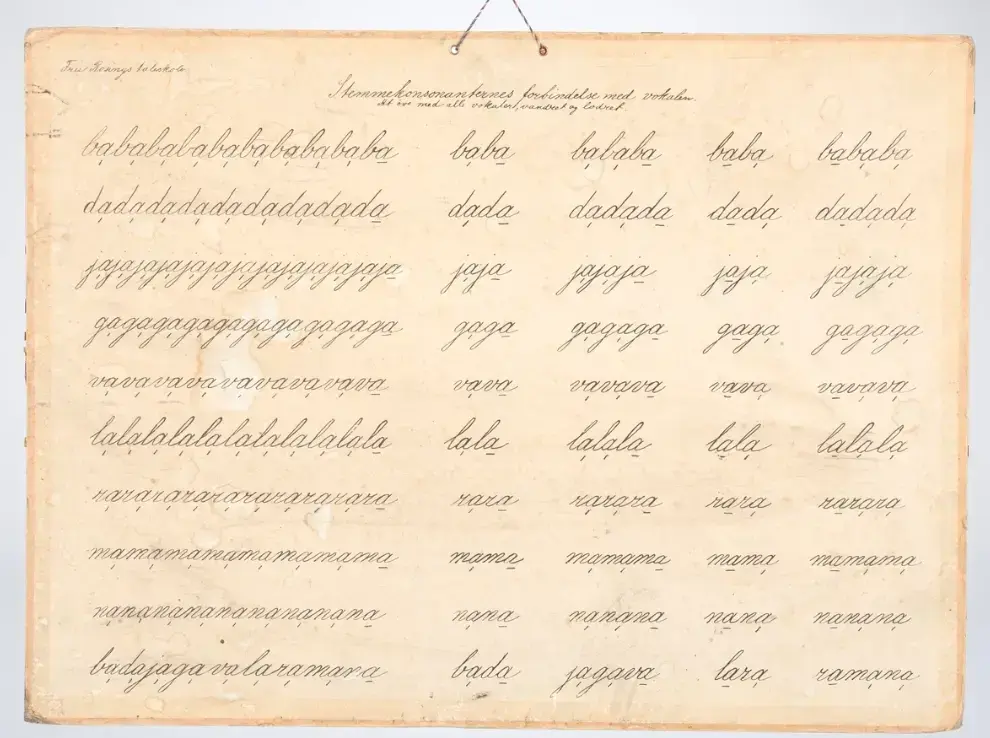 taleskole
Stemmekonsonanternes forbindelse med vokalen.
At øve med alle vokaler, vandret og lodret.
babababababababababa baba bababa baba bababa
dadadadadadadadadada dada dadada dada dadada
jajajajajajajajajajajaja jaja jajaja jaja jajaja
gagagagagagagagagaga gaga gagaga gaga gagaga
vavavavavavavavavava vava vavava vava vavava
lalalalalalalalalalala lala lalala lala lalala
rararararararararara rara rarara rara rarara
mamamamamamamama mama mamama mama mamama
nananananananananana nana nanana nana nanana
badajagavalaramana bada jagava lara ramana